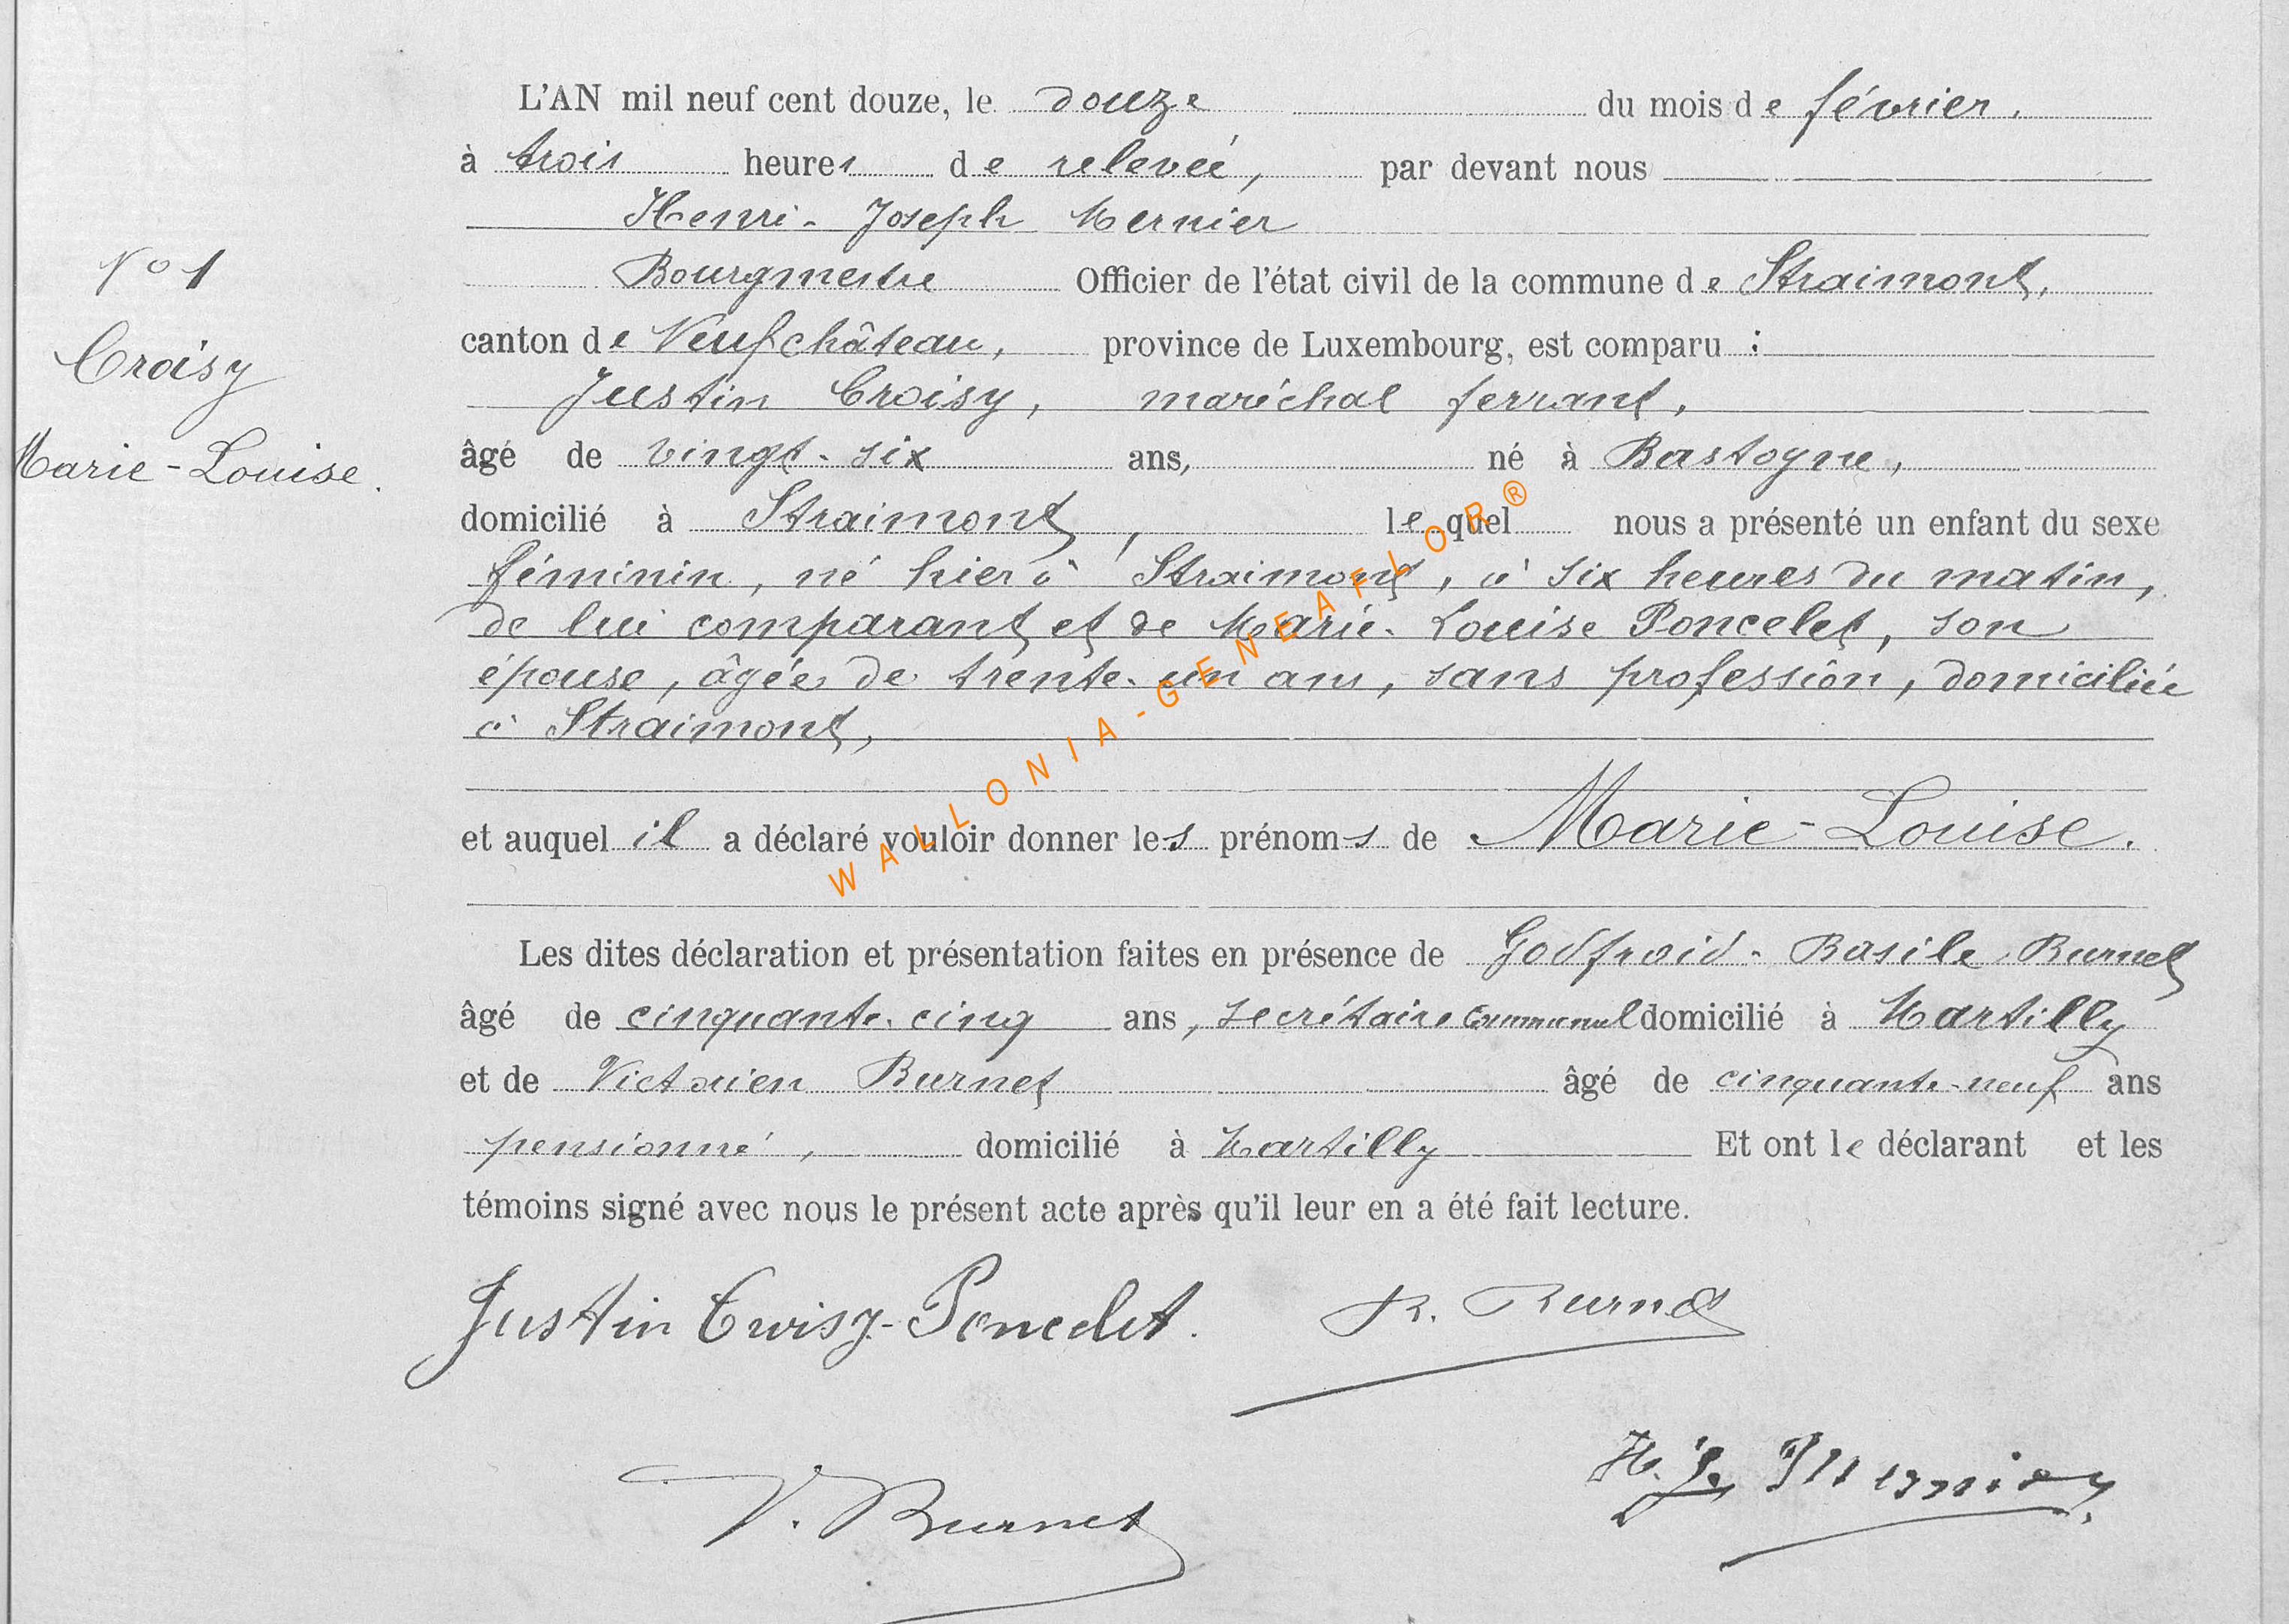 L'AN mil neuf cent douze, le douze du mois de février,
à trois heures de relevée, par devant nous
Henri-Joseph Mernier
Bourgmestre Officier de l'état civil de la commune de Straimont,
canton de Neufchâteau, province de Luxembourg, est comparu :
Justin Croisy, maréchal ferrant,
âgé de vingt-six ans, né à Bastogne,
domicilié à Straimont, lequel nous a présenté un enfant du sexe
féminin, né hier à Straimont, à six heures du matin,
de lui comparant et de Marie-Louise Poncelet, son
épouse, âgée de trente-un ans, sans profession, domiciliée
à Straimont,
et auquel il a déclaré vouloir donner les prénoms de Marie-Louise.
Les dites déclaration et présentation faites en présence de Godfroid-Basile Burnet
âgé de cinquante-cinq ans, secrétaire communal domicilié à Martilly
et de Victorien Burnet âgé de cinquante-neuf ans
pensionné, domicilié à Martilly Et ont le déclarant et les
témoins signé avec nous le présent acte après qu'il leur en a été fait lecture.
Justin Croisy-Poncelet. B. Burnet
V. Burnet
H. J. Mernier
N° 1
Croisy
Marie-Louise.
WALLONIA-GENEAFLOR®